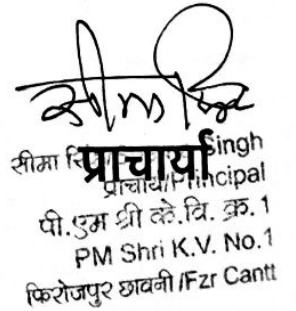 सीमा सिंह
प्राचार्या
सीमा Singh
प्राचार्या/Principal
पी.एम श्री के.वि. क्र. 1
PM Shri K.V. No.1
फिरोजपुर छावनी /Fzr Cantt